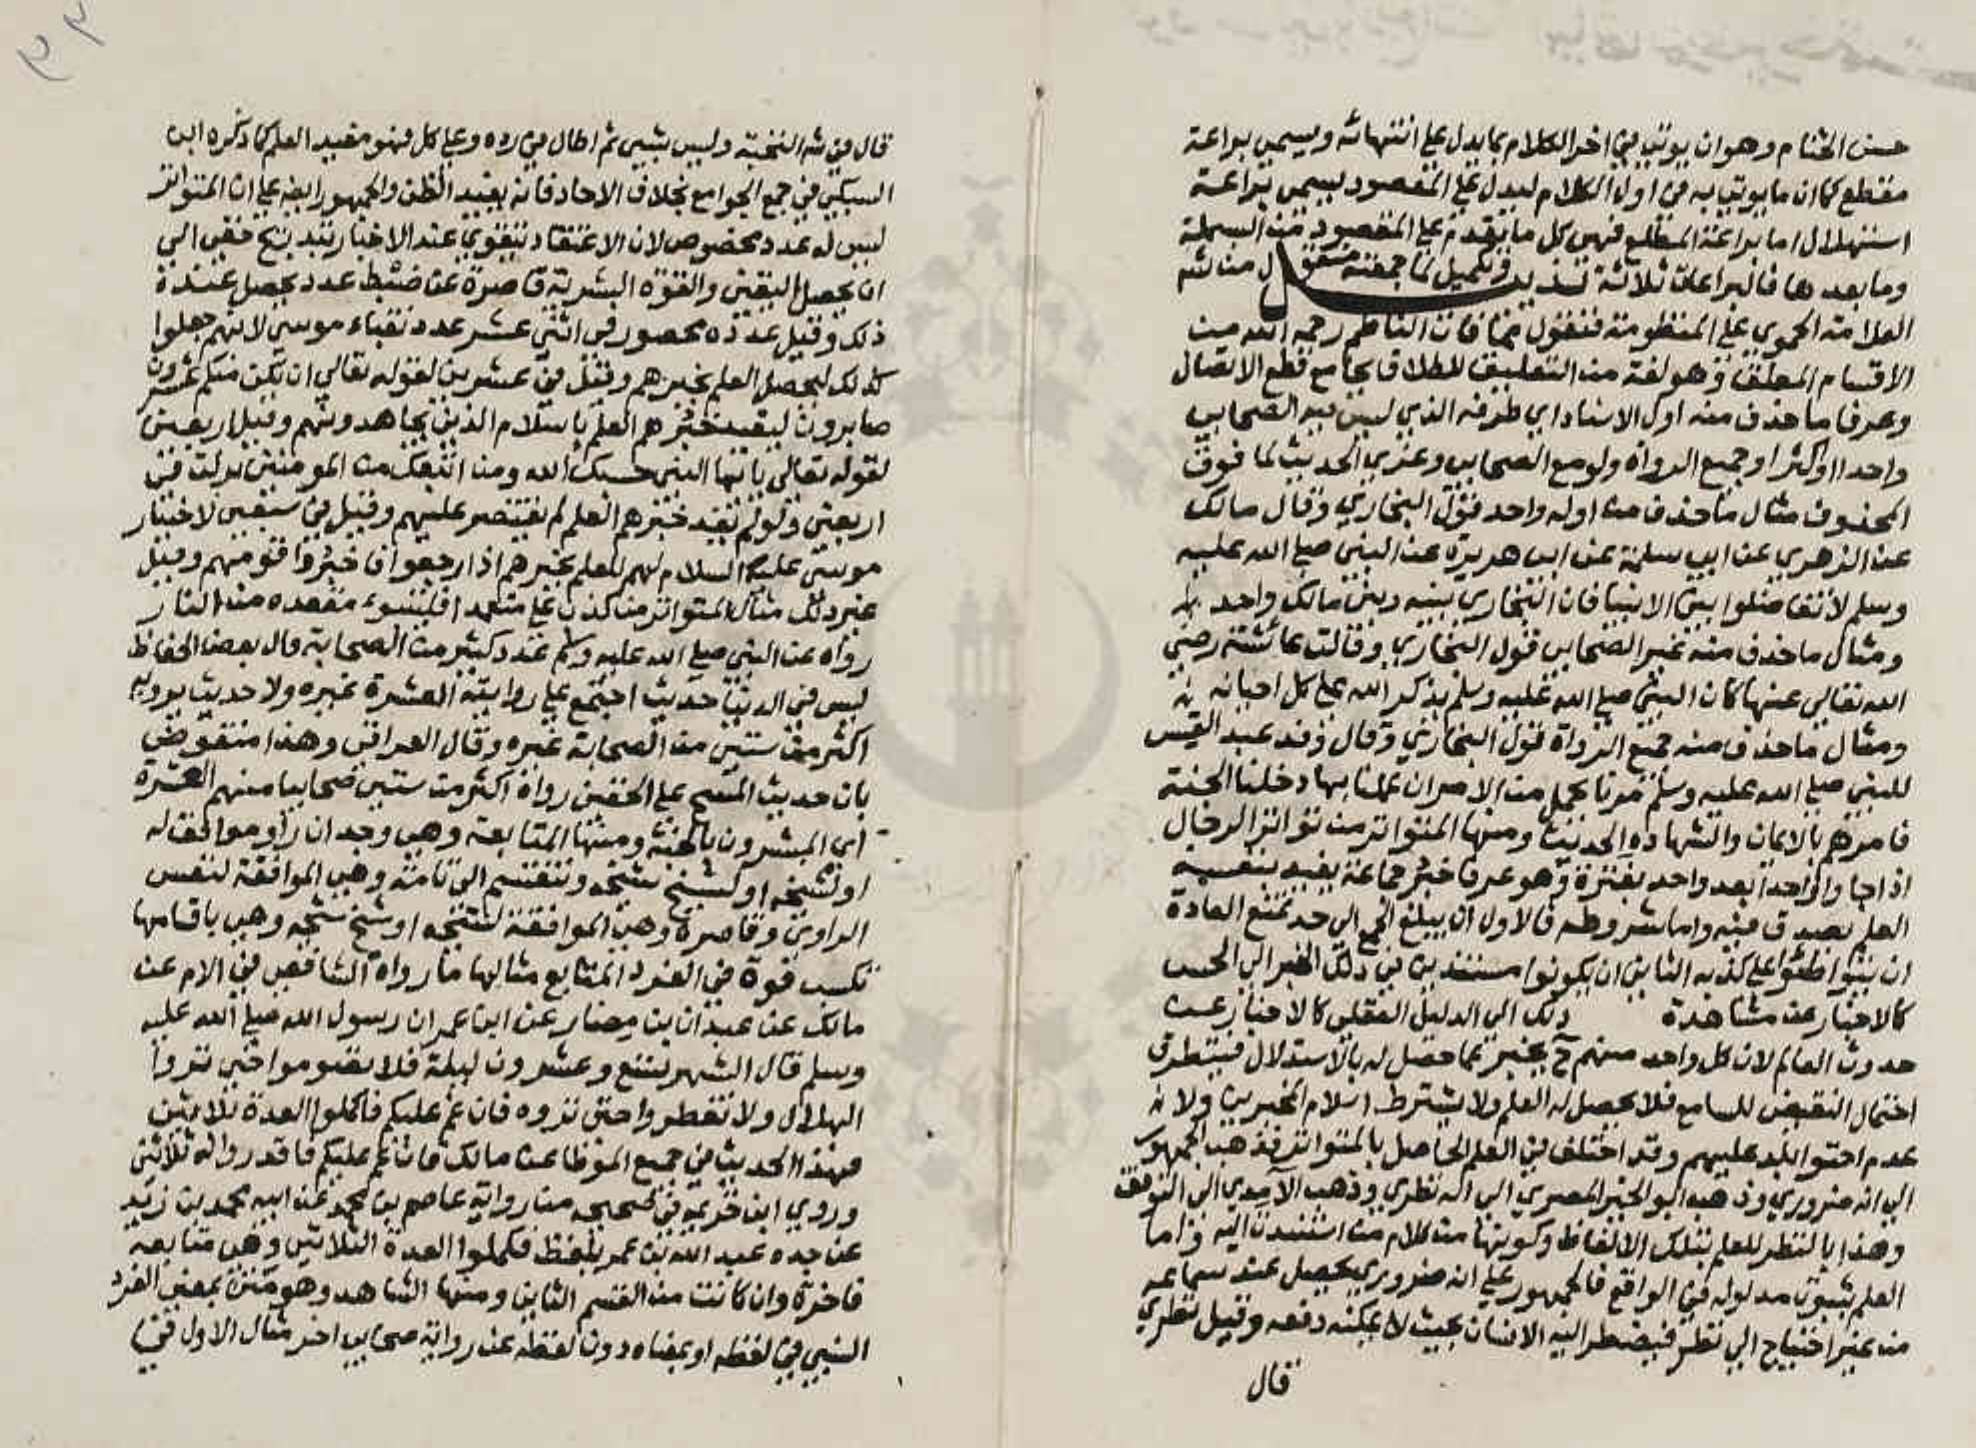 حسن الختام وهو ان يوتي في اخر الكلام بما يدل علي انتهائه ويسمي براعة
مقطع كما ان ما يوتي به في اول الكلام ليدل علي المقصود يسمي براعة
استهلال اما براعة المطلع فهي كل ما يقدم علي المقصود من البسملة
وما بعدها فالبراعات ثلاثة تذييل وتكميل لما جمعته منقول من شرح
العلامة الحموي علي المنظومة فنقول مما فات الناظم رحمه الله من
الاقسام المعلق وهو لغة من التعليق للطلاق بجامع قطع الاتصال
وعرفا ما حذف منه اول الاسناد اي طرفه الذي ليس فيه الصحابي
واحدا او اكثر او جميع الرواة ولو مع الصحابي وعزي الحديث لما فوق
المحذوف مثال ما حذف من اوله واحد قول البخاري وقال مالك
عن الزهري عن ابي سلمة عن ابي هريرة عن النبي صلي الله عليه
وسلم لا تفاضلوا بين الانبيا فان البخاري بينه وبين مالك واحد
ومثال ما حذف منه غير الصحابي قول البخاري وقالت عائشة رضي
الله تعالي عنها كان النبي صلي الله عليه وسلم يذكر الله علي كل احيانه
ومثال ما حذف منه جميع الرواة قول البخاري وقال وفد عبد القيس
للنبي صلي الله عليه وسلم مرنا بجمل من الامر ان عملنا بها دخلنا الجنة
فامرهم بالايمان والشهادة الحديث ومنها المتواتر من تواتر الرجال
اذا جاوا واحدا بعد واحد بفترة وهو عرفا خبر جماعة يفيد بنفسه
العلم بصدق فيه واما شروطه فالاول ان يبلغ الجمع الي حد تمنع العادة
ان يتواطئوا علي كذبه الثاني ان يكونوا مستندين في ذلك الخبر الي الحس
كالاخبار عن مشاهدة ذلك الي الدليل العقلي كالاخبار عن
حدوث العالم لان كل واحد منهم ح يخبر بما حصل له بالاستدلال فيتطرق
احتمال النقيض للسامع فلا يحصل له العلم ولا يشترط اسلام المخبرين ولا
عدم احتوا بلد عليهم وقد اختلف في العلم الحاصل بالمتواتر فذهب الجمهور
الي انه ضروري وذهب ابو الحسن البصري الي انه نظري وذهب الآمدي الي التوقف
وهذا بالنظر للعلم بتلك الالفاظ وكونها من كلام من استندت اليه واما
العلم بثبوت مدلوله في الواقع فالجمهور علي انه ضروري يحصل عند سماعه
من غير احتياج الي نظر فيضطر اليه الانسان بحيث لا يمكنه دفعه وقيل نظري
قال
قال في شرح النخبة وليس بشيي ثم اطال في رده وعلي كل فهو مفيد العلم كما ذكره ابن
السبكي في جمع الجوامع بخلاف الاحاد فانه يفيد الظن والجمهور ايضا علي ان المتواتر
ليس له عدد مخصوص لان الاعتقاد يتقوي عند الاخبار بتدريج خفي الي
ان يحصل اليقين والقوة البشرية قاصرة عن ضبط عدد يحصل عنده
ذلك وقيل عدده محصور في اثني عشر عدد نقباء موسي لانهم جعلوا
كذلك ليحصل العلم بخبرهم وقيل في عشرين لقوله تعالي ان يكن منكم عشرون
صابرون ليفيد خبرهم العلم باسلام الذين يجاهدونهم وقيل اربعين
لقوله تعالي ياايها النبي حسبك الله ومن اتبعك من المومنين نزلت في
اربعين ولو لم يفد خبرهم العلم لم يقتصر عليهم وقيل في سبعين لاختيار
موسي عليه السلام لهم للعلم بخبرهم اذا رجعوا فاخبروا قومهم وقيل
غير ذلك مثال المتواتر من كذب علي متعمدا فليتبوء مقعده من النار
رواه عن النبي صلي الله عليه وسلم عدد كثير من الصحابة قال بعض الحفاظ
ليس في الدنيا حديث اجتمع علي روايته العشرة غيره ولا حديث يرويه
اكثر من ستين من الصحابة غيره وقال العراقي وهذا منقوض
بان حديث المسح علي الخفين رواه اكثر من ستين صحابيا منهم العشرة
اي المبشرون بالجنة ومنها المتابعة وهي وجدان راو موافق له
او لشيخه او لشيخ شيخه وتنقسم الي تامة وهي الموافقة لنفس
الراوي وقاصرة وهي الموافقة لشيخه او شيخ شيخه وهي باقسامها
تكسب قوة في الفرد المتابع مثالها ما رواه الشافعي في الام عن
مالك عن عبد الله بن دينار عن ابن عمر ان رسول الله صلي الله عليه
وسلم قال الشهر تسع وعشرون ليلة فلا تصوموا حتي تروا
الهلال ولا تفطروا حتي تروه فان غم عليكم فاكملوا العدة ثلاثين
فهذا الحديث في جميع الموطا عن مالك فان غم عليكم فاقدروا له ثلاثين
وروي ابن خزيمة في صحيحه من رواية عاصم بن محمد عن ابيه محمد بن زيد
عن جده عبد الله بن عمر بلفظ فكملوا العدة الثلاثين وهي متابعة
قاصرة وان كانت من القسم الثاني ومنها الشاهد وهو متن بمعني الفرد
النسبي في لفظه او بمعناه دون لفظه عن رواية صحابي اخر مثال الاول في